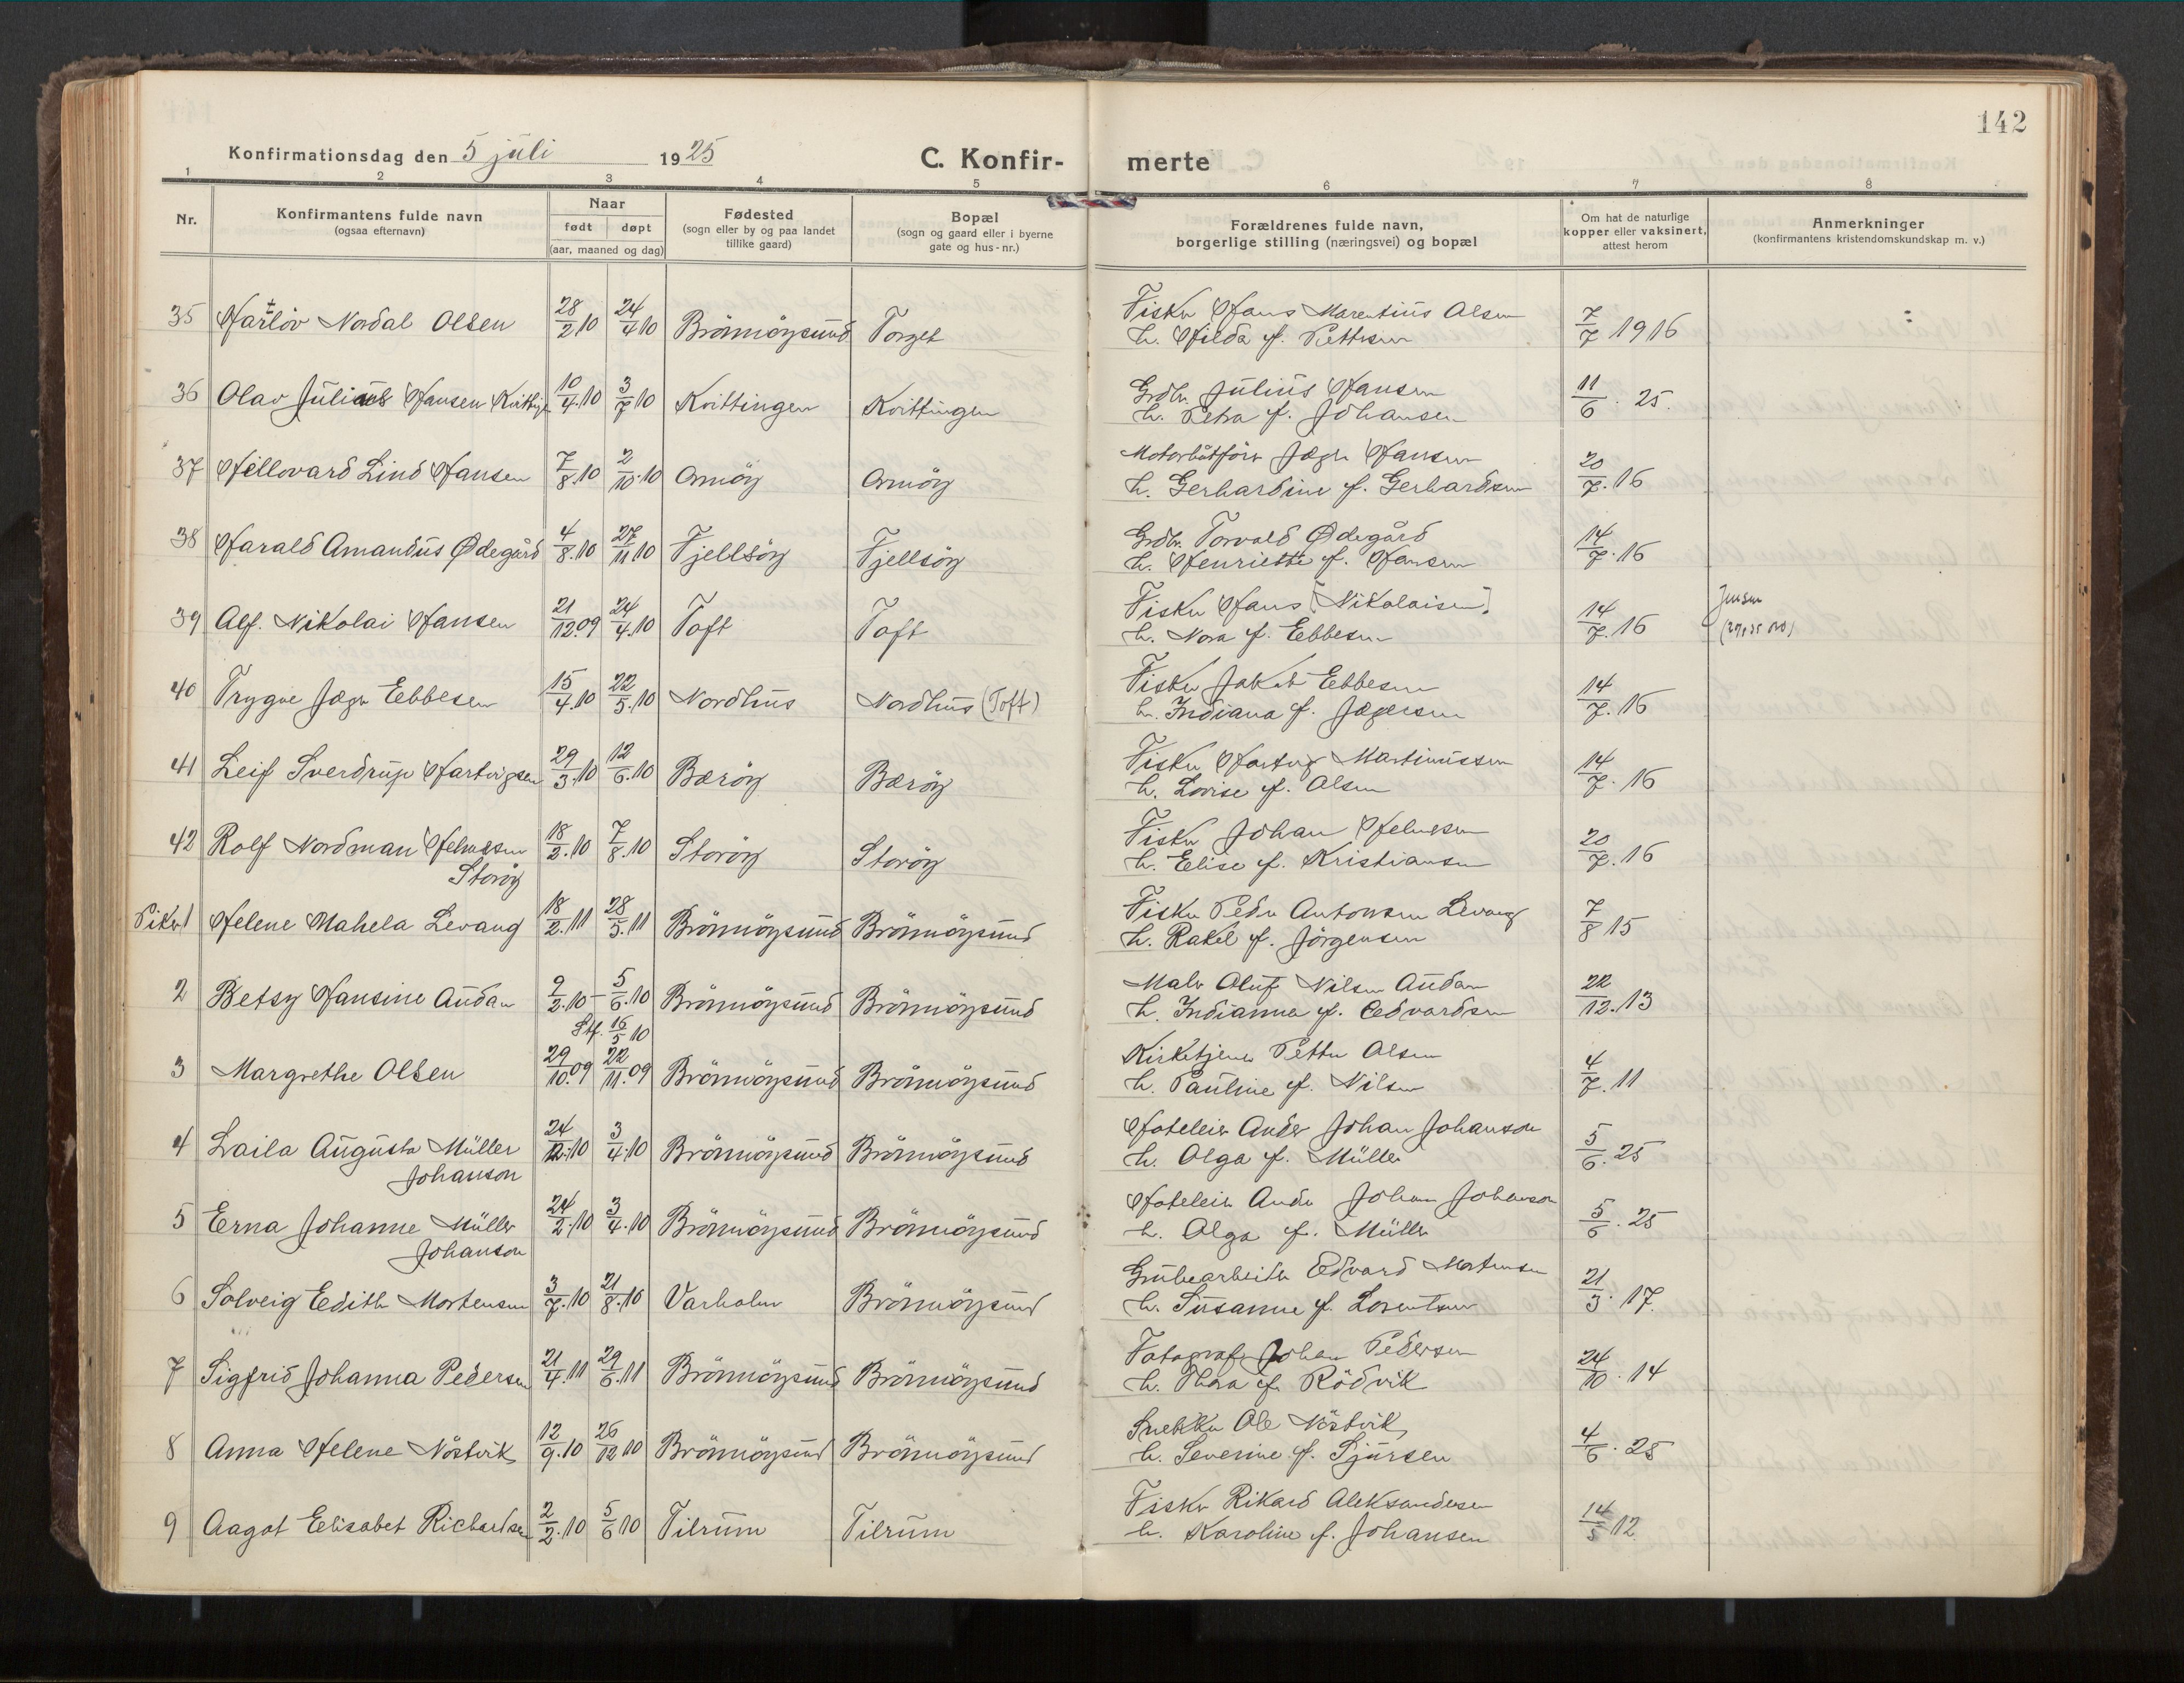 142
Konfirmationsdag den 5 juli 1925
C. Konfir-
merte
1 2 3 4 5 6 7 8
Nr.
Konfirmantens fulde navn
(ogsaa efternavn)
Naar
født døpt
(aar, maaned og dag)
Fødested
(sogn eller by og paa landet
tillike gaard)
Bopæl
(sogn og gaard eller i byerne
gate og hus-nr.)
Forældrenes fulde navn,
borgerlige stilling (næringsvei) og bopæl
Om hat de naturlige
kopper eller vaksinert,
attest herom
Anmerkninger
(konfirmantens kristendomskundskap m. v.)
35 Nordal Olsen 28/2 10 24/4 10 Brönnöysund Torget
Fisker Hans Marentius Olsen
h. Hilda f. Pettersen
7/7 1916
36 Olav Julius Hansen 10/4.10 3/7 10 Kvittingen Kvittingen
Grdbr. Julius Hansen
h. Petra f. Johansen
11/6. 25.
37 Hillovard Lind Hansen 7/8.10 2/10.10 Armöy Armöy
Motorbåtförer Jæger Hansen
h. Gerhardine f. Gerhardsen
20/7.16
38 Harald Amandus Ødegård 4/8.10 27/11 10 Fjellsöy Fjellsöy
Grdbr. Torvald Ødegård
h. Henriette f. Hansen
14/7.16
39 Alf. Nikolai Hansen 21/12.09 24/4.10 Toft Toft
Fisker Hans [Nikolaisen].
h. Nora f. Ebbesen
14/7.16
Jensen
40 Trygve Jæger Ebbesen 15/4.10 22/5.10 Nordhus Nordhus (Toft)
Fisker Jakob Ebbesen
h. Indiana f. Jægersen
14/7.16
41 Leif Sverdrup Hartvigsen 29/3.10 12/6.10 Bæröy Bæröy
Fisker Hartvig Martinussen
h. Lovise f. Olsen
14/7.16
42 Rolf Nordman Helmersen 18/2.10 7/8.10 Storöy Storöy
Storöy
Fisker Johan Helmersen
h. Elise f. Kristiansen
20/7.16
Piker 1 Helene Mahela Levang 18/2.11 28/5.11 Brönnöysund Brönnöysund
Fisker Peder Antonsen Levang
h. Rakel f. Jörgensen
7/8 15
2 Betsy Hansine Audan 9/2.10 - 5/6.10 Brönnöysund Brönnöysund
Stf. 16/5 10
Maler Oluf Nilsen Audan
h. Indianna f. Edvardsen
22/12.13
3 Margrethe Olsen 29/10.09 22/11.09 Brönnöysund Brönnöysund
Kirketjener Petter Olsen
h. Pauline f. Nilsen
4/7.11
4 Laila Augusta Müller 24/2.10 3/4.10 Brönnöysund Brönnöysund
Johanson
Hoteleier Ander Johan Johanson
h. Olga f. Müller
5/6.25
5 Erna Johanne Müller 24/2.10 3/4.10 Brönnöysund Brönnöysund
Johanson
Hoteleier Ander Johan Johanson
h. Olga f. Müller
5/6.25
6 Solveig Edith Mortensen 3/7.10 21/8.10 Varholm Brönnöysund
Grubearbeider Edvard Mortensen
h. Susanne f. Lorentsen
21/3.17.
7 Sigfrid Johanna Pedersen 21/4.11 29/6.11 Brönnöysund Brönnöysund
Fotograf Johan Pedersen
h. Thora f. Rödvik
24/10.14
8 Anna Helene Nöstvik 12/9.10 26/12 10 Brönnöysund Brönnöysund
Snekker Ole Nöstvik
h. Severine f. Sjursen
4/6.25
9 Aagot Elisabet Richardsen 2/2.10 5/6 10 Tilrum Tilrum
Fisker Rikard Aleksandersen
h. Karoline f. Johansen
14/5 12